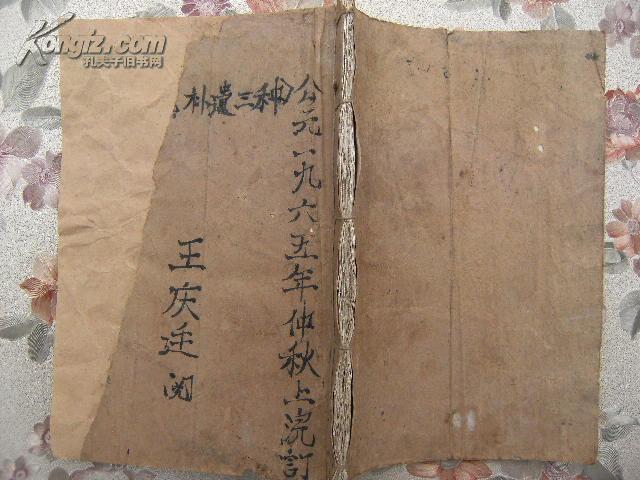 Kongfz.com
孔夫子旧书网
公元一九六五年仲秋上浣訂
朴遗三种
王庆廷阅